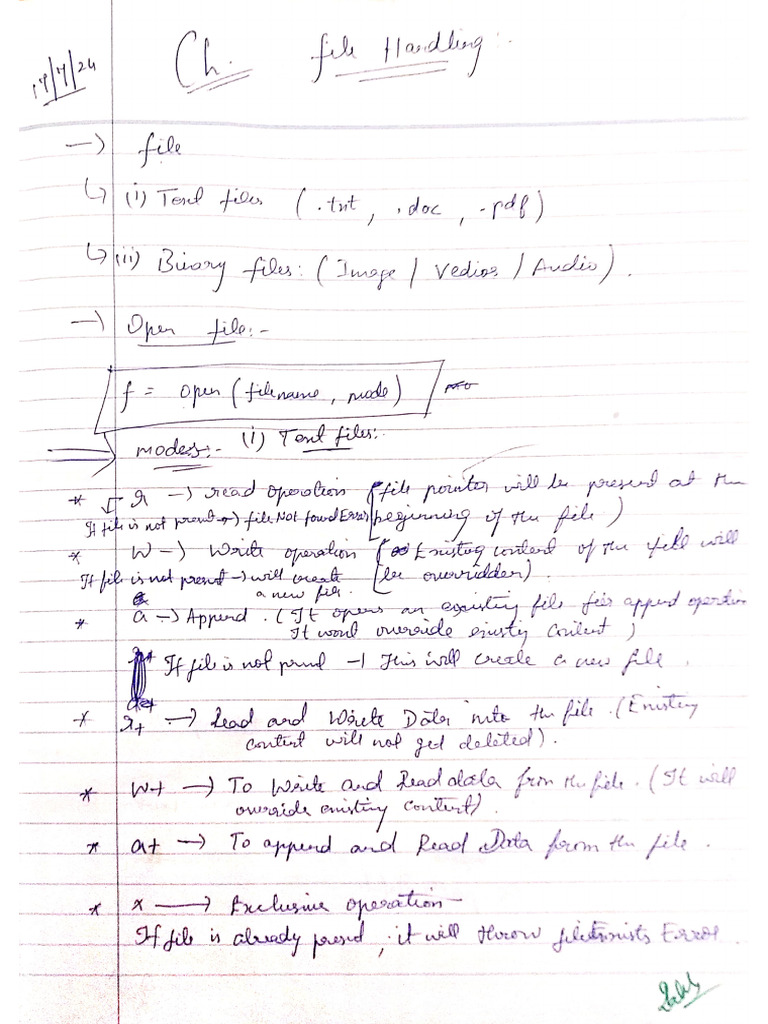 17/7/24
Ch. File Handling:-
→ file
↳ (i) Text files (.txt, .doc, .pdf)
↳ (ii) Binary files: (Image / Vedios / Audio).
→ Open file:-
f = open (filename, mode)
modes:- (i) Text files:-
* r → read operation (file pointer will be present at the
If file is not present → file Not found Error beginning of the file)
* W → Write operation (Existing content of the file will
If file is not present → will create be overridden).
a new file.
* a → Append. (It opens an existing file for append operation
It wont override existing content)
If file is not present → This will create a new file.
* r+ → Read and Write Data into the file. (Existing
content will not get deleted).
* W+ → To Write and Read data from the file. (It will
override existing content).
* a+ → To append and Read Data from the file.
* x → Exclusive operation
If file is already present, it will throw file Exists Error.